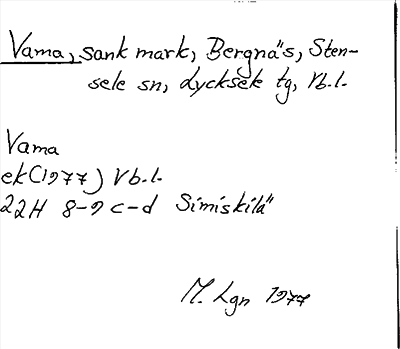 Vama, sank mark, Bergnäs, Sten-
sele sn, Lycksele tg, Vb.l.
Vama
ek(1977) Vb.l.
22H 8-9 c-d Simiskilä
M. Lgn 1977